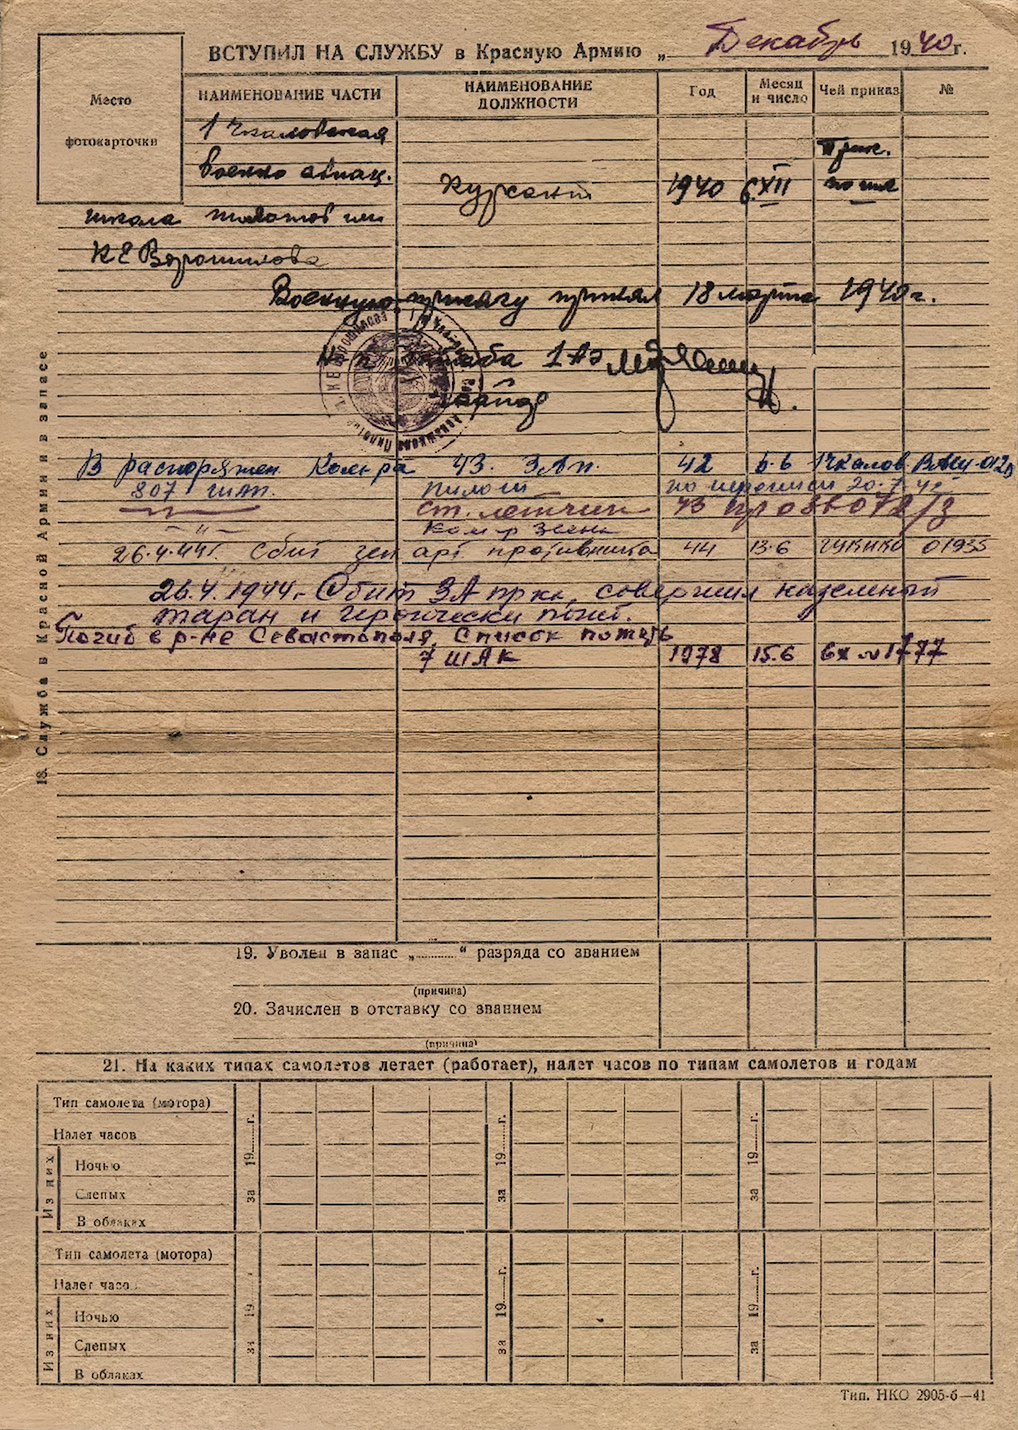 ВСТУПИЛ НА СЛУЖБУ в Красную Армию „ Декабрь 1940 г.
Место
фотокарточки
НАИМЕНОВАНИЕ ЧАСТИ
НАИМЕНОВАНИЕ ДОЛЖНОСТИ
Год
Месяц и число
Чей приказ
№
1 Чкаловская
военно авиац.
школа пилотов им
К Е Ворошилова
Курсант 1940 6.XII
Военную присягу принял 18 марта 1940г.
штаба 1 АЭ
В распоряжен. Ком-ра 43. ЗАП. 42 6.6 Чкалов
807 шап. пилот
ст. летчик 43
" Ком-р Звена
26.4.44г. Сбит зен арт противника 44 13.6 ГУКИКО 01935
26.4.1944г. Сбит ЗА пр-ка, совершил наземный
таран и героически погиб.
Погиб в р-не Севастополя, Список потерь
7 ШАК 1978 15.6 вх № 1777
18. Служба в Красной Армии и в запасе
19. Уволен в запас „............“ разряда со званием
(причина)
20. Зачислен в отставку со званием
(причина)
21. На каких типах самолетов летает (работает), налет часов по типам самолетов и годам
Тип самолета (мотора)
Налет часов
Из них
Ночью
Слепых
В облаках
за 19......г.
за 19......г.
за 19......г.
Тип самолета (мотора)
Налет часов
Из них
Ночью
Слепых
В облаках
за 19
за 19......г.
за 19......г.
Тип. НКО 2905-б—41